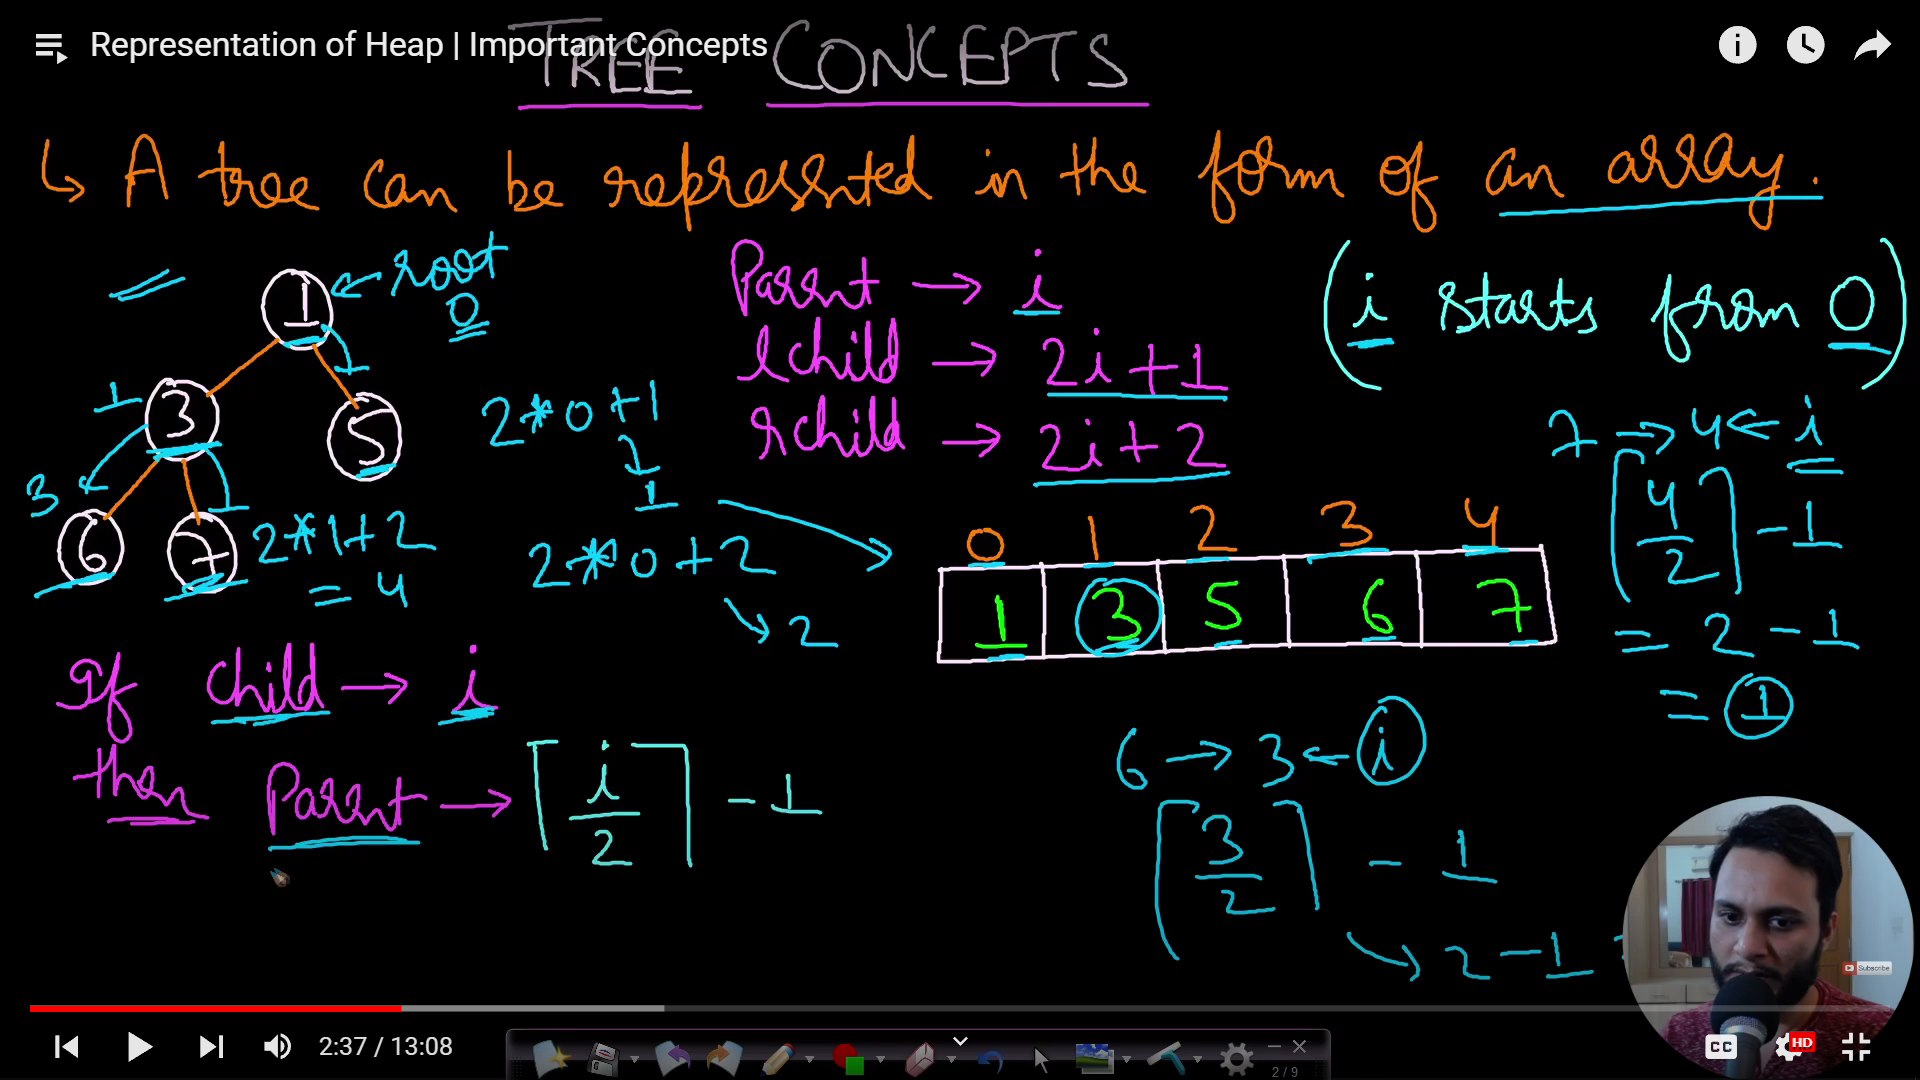 Representation of Heap | Important Concepts
TREE CONCEPTS
↳ A tree can be represented in the form of an array.
1 ← root
0
1
3
5
1
3
6
7
2*1+2
= 4
2*0+1
1
2*0+2
2
Parent → i
lchild → 2i+1
rchild → 2i+2
(i starts from 0)
0 1 2 3 4
1 3 5 6 7
7 → 4 ← i
⌈4/2⌉ - 1
= 2 - 1
= 1
If child → i
then Parent → ⌈i/2⌉ - 1
6 → 3 ← i
⌈3/2⌉ - 1
→ 2 - 1
Subscribe
2:37 / 13:08
2 / 9
CC
HD